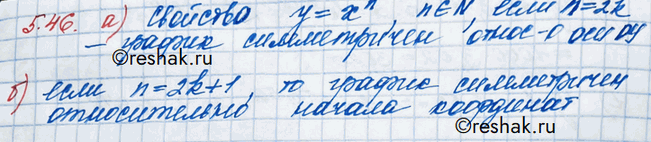 5.46. а) Свойство y = xⁿ n∈N если n=2k
– график симметричен относ-о оси оу
б) если n=2k+1, то график симметричен
относительно начала координат
©reshak.ru
©reshak.ru